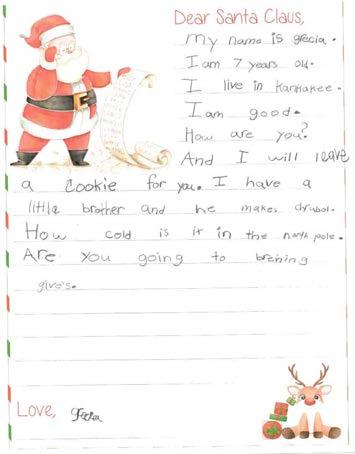 Dear Santa Claus,
My name is grecia.
I am 7 years old.
I live in Kankakee.
I am good.
How are you?
And I will leave
a cookie for you. I have a
little brother and he makes chrubol.
How cold is it in the north pole.
Are you going to brening
give's.
Love, grecia